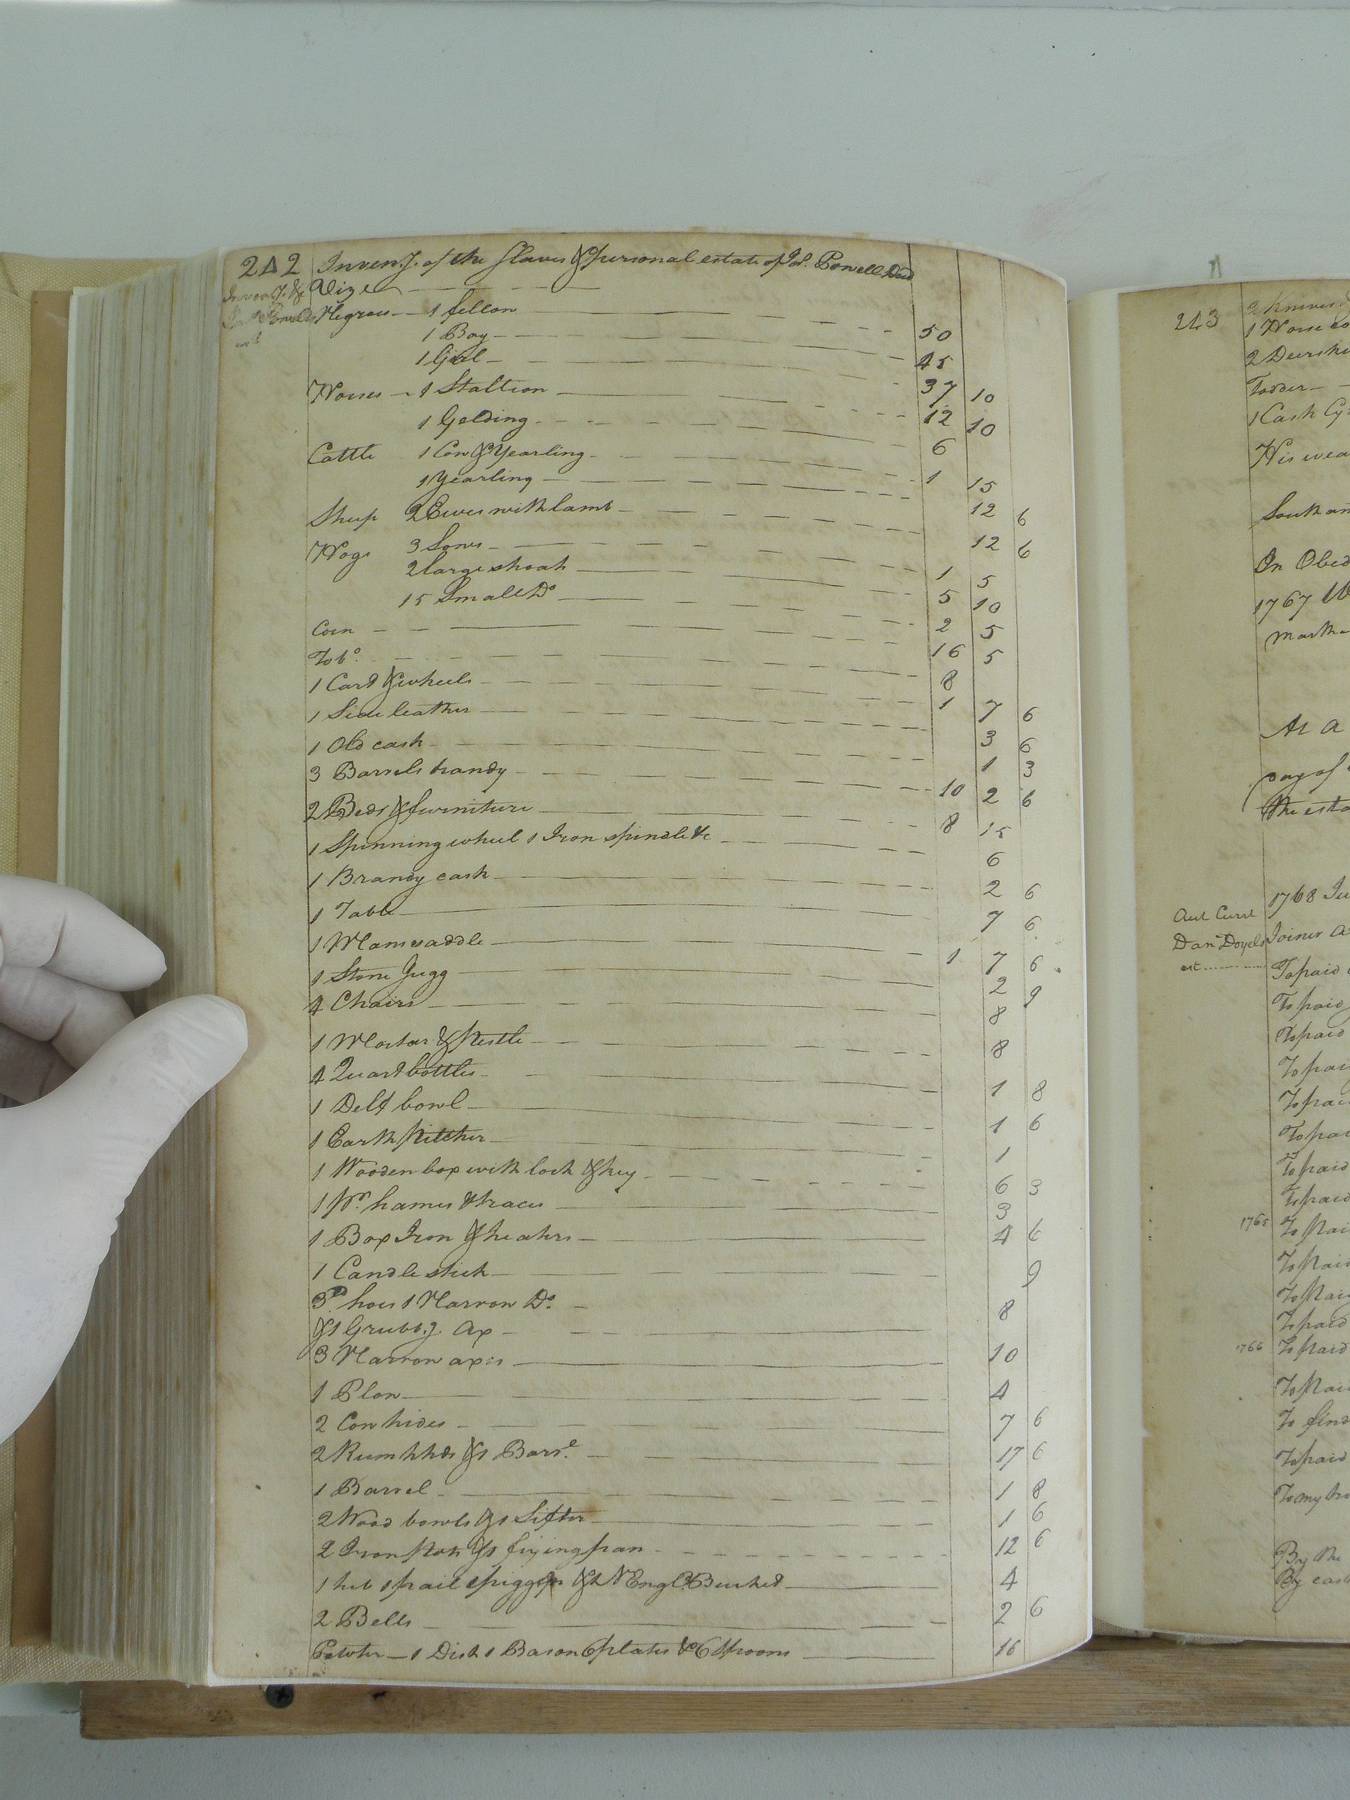 242 Inven.y. of the Slaves & personal estate of Jos. Powell Decd
Inven.y. &c Viz
Powells Negroes — 1 fellow 50
est 1 Boy 45
1 Girl 37 10
Horses — 1 Stallion 12 10
1 Gelding 6
Cattle 1 Cow & Yearling 1 15
1 Yearling 12 6
Sheep 2 Ewes with lamb 12 6
Hogs 3 Sows 1 5
2 large shoats 5 10
15 Small Do 2 5
Corn 16 5
Tobo. 8
1 Cart & wheels 1 7 6
1 Side leather 3 6
1 Old cask 1 3
3 Barrels brandy 10 2 6
2 Beds & furniture 8 15
1 Spinning wheel 1 Iron spindle &c 6
1 Brandy cask 2 6
1 Table 7 6
1 Mans saddle 1 7 6
1 Stone Jugg 2 9
4 Chairs 8
1 Mortar & Pestle 8
4 Quart bottles 1 8
1 Delf bowl 1 6
1 Earth Pitcher 1
1 Wooden box with lock & key 6 3
1 Pr. hames & traces 3
1 Box Iron & heaters 4 6
1 Candlestick 9
3 P hoes 1 Narrow Do.
& 1 Grubb.g. Ax 8
3 Narrow axes 10
1 Plow 4
2 Cow hides 7 6
2 Rum hhds & 1 Barr.l 17 6
1 Barrel 1 8
2 Wood bowls & 1 Sifter 1 6
2 Iron Pots & 1 frying pan 12 6
1 tub 1 pail 1 piggin & 1 N Engld Bucket 4
2 Bells 2 6
Pewter — 1 Dish 1 Bason 6 plates & 6 Spoons 16
243 2 Knives
1 Horse
2 Deerski
Fodder
1 Cask Cy
His wea
Southam
In Obed
1767 W
Martha
At a
pay of
the esta
1768 Ju
Acct Currt
Dan Doyels Joiner a
est To paid
To paid
To paid
To pai
To pai
To pai
To paid
To paid
1765 To pai
To paid
To pai
To paid
1766 To paid
To pai
To find
To paid
To my tro
By the
By cas